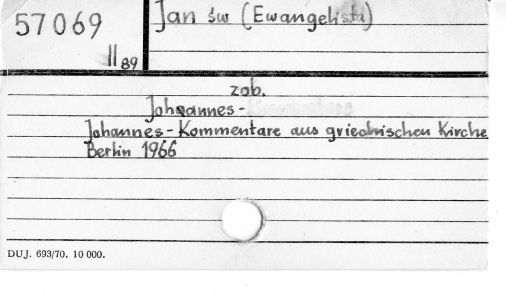 57069
II 89
Jan św (Ewangelista)
zob.
Johannes-
Johannes-Kommentare aus griechischen Kirche
Berlin 1966
DUJ. 693/70. 10 000.